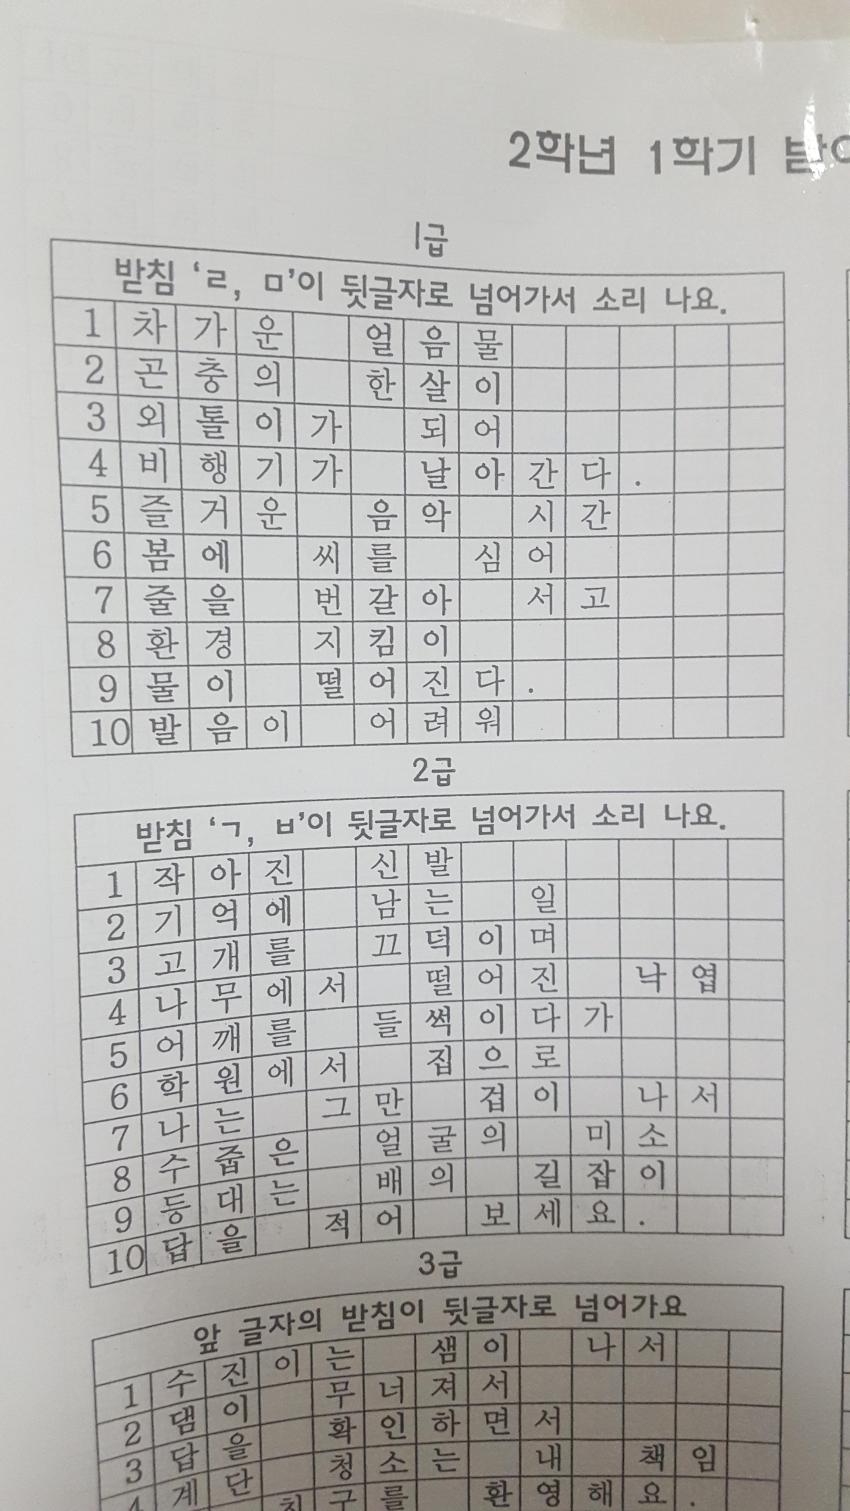 2학년 1학기
1급
받침 ‘ㄹ, ㅁ’이 뒷글자로 넘어가서 소리 나요.
1 차가운 얼음물
2 곤충의 한살이
3 외톨이가 되어
4 비행기가 날아간다.
5 즐거운 음악 시간
6 봄에 씨를 심어
7 줄을 번갈아 서고
8 환경 지킴이
9 물이 떨어진다.
10 발음이 어려워
2급
받침 ‘ㄱ, ㅂ’이 뒷글자로 넘어가서 소리 나요.
1 작아진 신발
2 기억에 남는 일
3 고개를 끄덕이며
4 나무에서 떨어진 낙엽
5 어깨를 들썩이다가
6 학원에서 집으로
7 나는 그만 겁이 나서
8 수줍은 얼굴의 미소
9 등대는 배의 길잡이
10 답을 적어 보세요.
3급
앞 글자의 받침이 뒷글자로 넘어가요
1 수진이는 샘이 나서
2 댐이 무너져서
3 답을 확인하면서
4 계단 청소는 내 책임
친구를 환영해요.